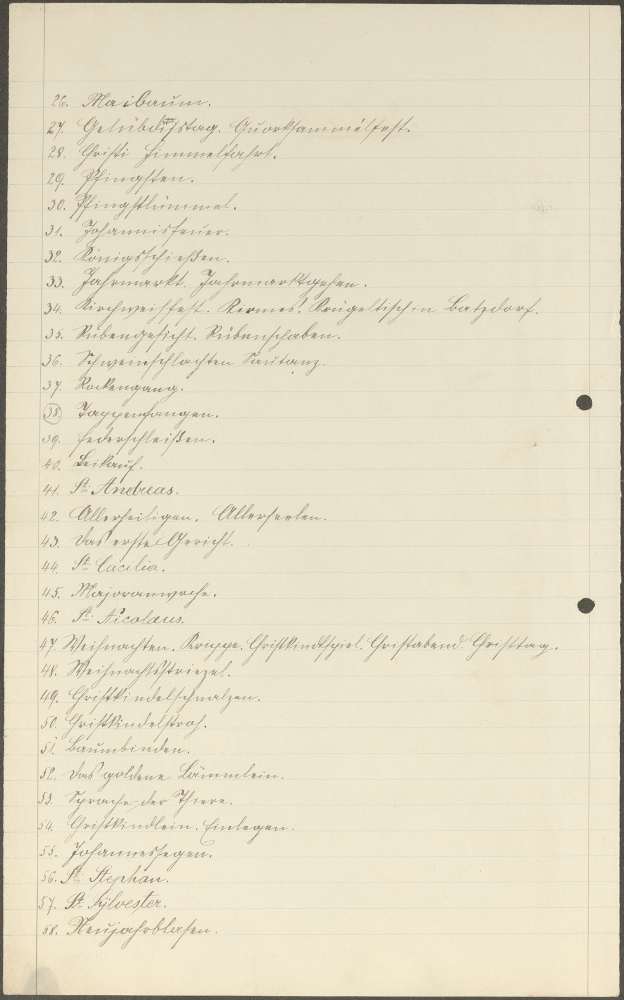 26. Maibaum.
27. Gelübdißtag. Quarksammelfest.
28. Christi Himmelfahrt.
29. Pfingsten.
30. Pfingstlümmel.
31. Johannisfeuer.
32. Königsschießen.
33. Jahrmarkt. Jahrmarktgehen.
34. Kirchweihfest. Kermes! Prügeltisch in Batzdorf.
35. Rübengesicht. Rübenschaben.
36. Schweineschlachten Sautanz.
37. Rockengang.
38. Tappenfangen.
39. Federschleißen.
40. Leikauf.
41. St. Andreas.
42. Allerheiligen. Allerseelen.
43. Das erste Gericht.
44. St. Cäcilia.
45. Majoranwoche.
46. St. Nicolaus.
47. Weihnachten. Krippe. Christkindlspiel. Christabend. Christtag.
48. Weihnachtsstriezel.
49. Christkindelschmalzen.
50. Christkindelstroh.
51. Baumbinden.
52. Das goldene Lämmlein.
53. Sprache der Thiere.
54. Christkindlein. Einlegen.
55. Johannessegen.
56. St. Stephan.
57. St. Sylvester.
58. Neujahrblasen.